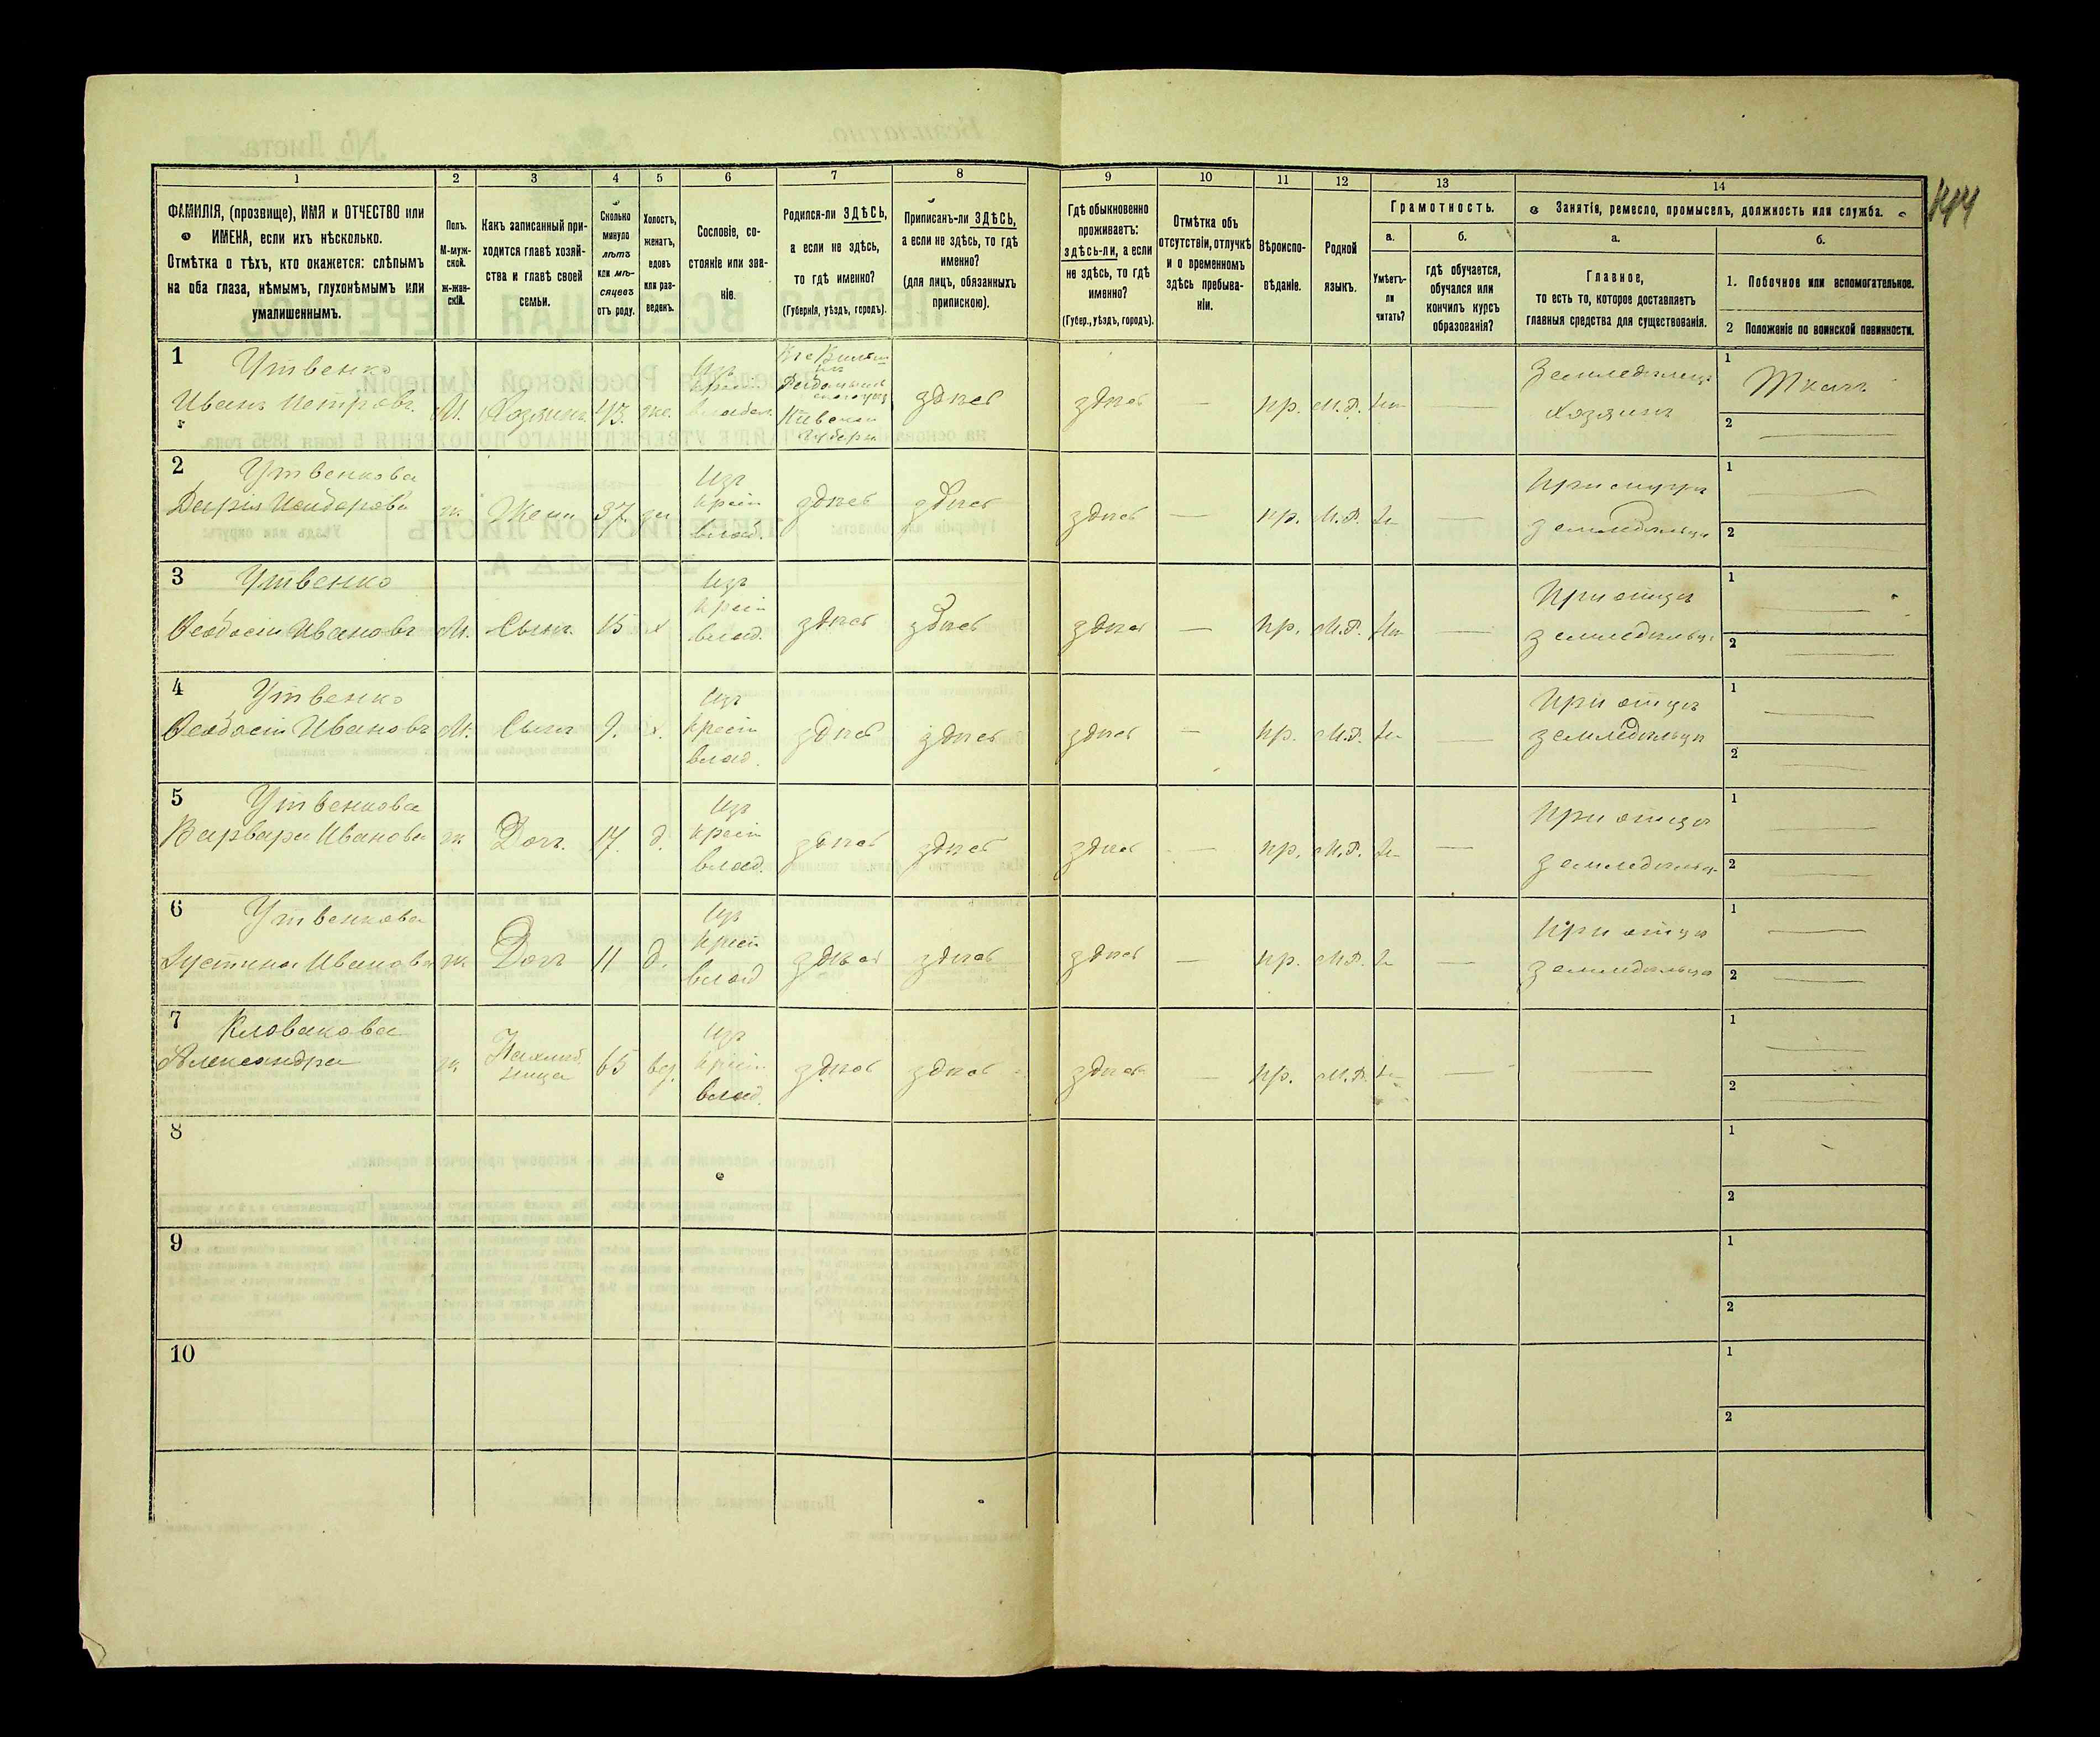 1 2 3 4 5 6 7 8 9 10 11 12 13 14
ФАМИЛІЯ, (прозвище), ИМЯ и ОТЧЕСТВО или
ИМЕНА, если ихъ нѣсколько.
Отмѣтка о тѣхъ, кто окажется: слѣпымъ
на оба глаза, нѣмымъ, глухонѣмымъ или
умалишеннымъ.
Полъ.
М-муж-
ской.
ж-жен-
скій.
Какъ записанный при-
ходится главѣ хозяй-
ства и главѣ своей
семьи.
Сколько
минуло
лѣтъ
или мѣ-
сяцевъ
отъ роду.
Холостъ,
женатъ,
вдовъ
или раз-
веденъ.
Сословіе, со-
стояніе или зва-
ніе.
Родился-ли ЗДѢСЬ,
а если не здѣсь,
то гдѣ именно?
(Губернія, уѣздъ, городъ).
Приписанъ-ли ЗДѢСЬ,
а если не здѣсь, то гдѣ
именно?
(для лицъ, обязанныхъ
припискою).
Гдѣ обыкновенно
проживаетъ:
здѣсь-ли, а если
не здѣсь, то гдѣ
именно?
(Губер., уѣздъ, городъ).
Отмѣтка объ
отсутствіи, отлучкѣ
и о временномъ
здѣсь пребыва-
ніи.
Вѣроиспо-
вѣданіе.
Родной
языкъ.
Грамотность.
а.
Умѣетъ-
ли
читать?
б.
гдѣ обучается,
обучался или
кончилъ курсъ
образованія?
Занятія, ремесло, промыселъ, должность или служба.
а.
Главное,
то есть то, которое доставляетъ
главныя средства для существованія.
б.
1. Побочное или вспомогательное.
2 Положеніе по воинской повинности.
144
1 Утвенко
Иванъ Петровъ М. Хозяинъ 43. же. Изъ крест. владѣл. Кіевской губерн здѣсь здѣсь — пр. М.Р. — Земледѣлецъ хозяинъ 1 Ткачъ
2 —
2 Утвенкова
Дарія ж Жена 37. Изъ крест влад. здѣсь здѣсь здѣсь — пр. М.Р. — При мужѣ земледѣльцѣ 1 —
2 —
3 Утвенко
Ѳеодосій Ивановъ М. Сынъ 15 х Изъ крест влад. здѣсь здѣсь здѣсь — пр. М.Р. — При отцѣ земледѣльцѣ 1 —
2 —
4 Утвенко
Ѳеодосій Ивановъ М. Сынъ 9. х. Изъ крест влад. здѣсь здѣсь здѣсь — пр. М.Р. — При отцѣ земледѣльцѣ 1 —
2 —
5 Утвенкова
Варвара Иванова ж Дочь. 17. д. Изъ крест влад. здѣсь здѣсь здѣсь — пр. М.Р. — При отцѣ земледѣльцѣ 1 —
2 —
6 Утвенкова
Іустина Иванова ж Дочь 11 д. Изъ крест влад здѣсь здѣсь здѣсь — пр. М.Р. — При отцѣ земледѣльца 1 —
2 —
7 Кловакова
Александра ж 65 вд. Изъ крест влад. здѣсь здѣсь здѣсь — пр. М.Р. — — 1 —
2 —
8 1
2
9 1
2
10 1
2